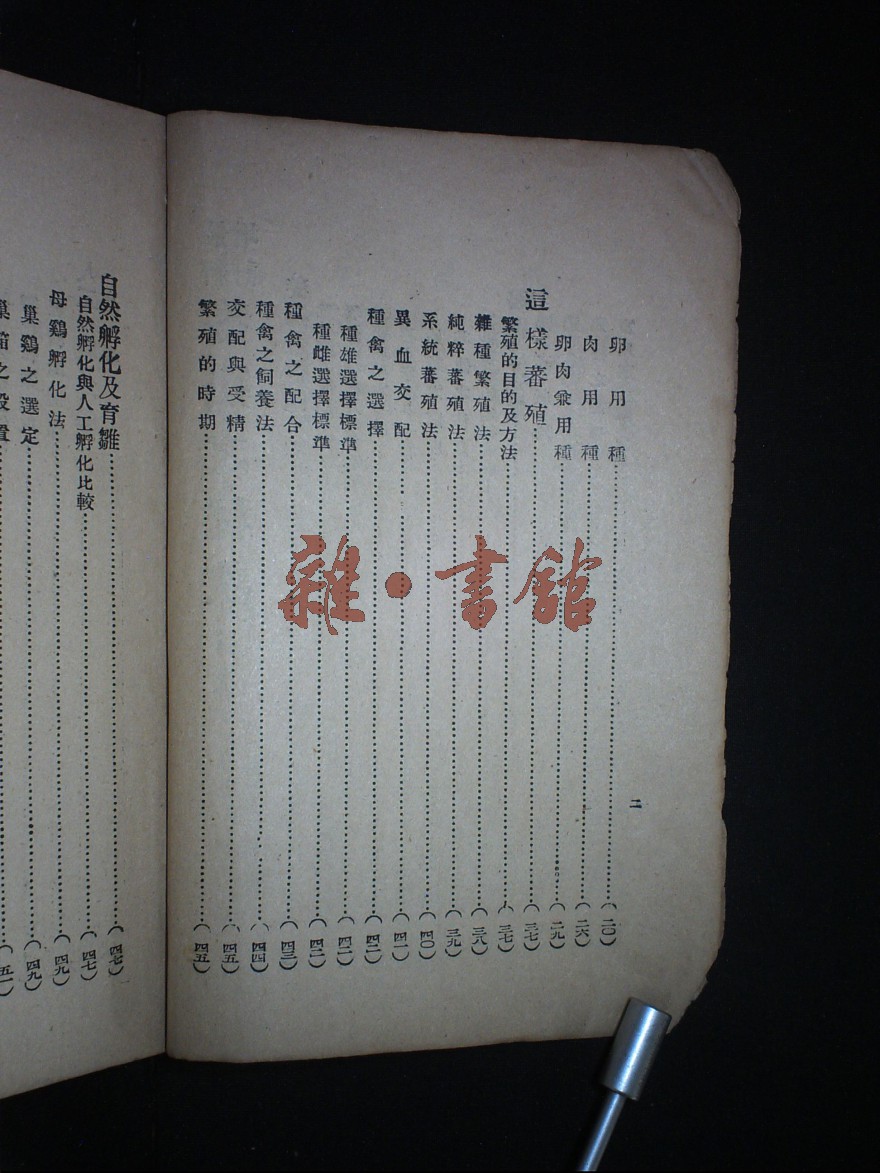 卵用種……(二〇)
肉用種……(二六)
卵肉兼用種……(二九)
這樣蕃殖……(三七)
繁殖的目的及方法……(三七)
雜種繁殖法……(三八)
純粹蕃殖法……(三九)
系統蕃殖法……(四〇)
異血交配……(四一)
種禽之選擇……(四二)
種雄選擇標準……(四二)
種雌選擇標準……(四二)
種禽之配合……(四三)
種禽之飼養法……(四四)
交配與受精……(四五)
繁殖的時期……(四五)
二
自然孵化及育雛……(四七)
自然孵化與人工孵化比較……(四七)
母鷄孵化法……(四九)
巢鷄之選定……(四九)
巢箱之設置……(五一)
雜·書館